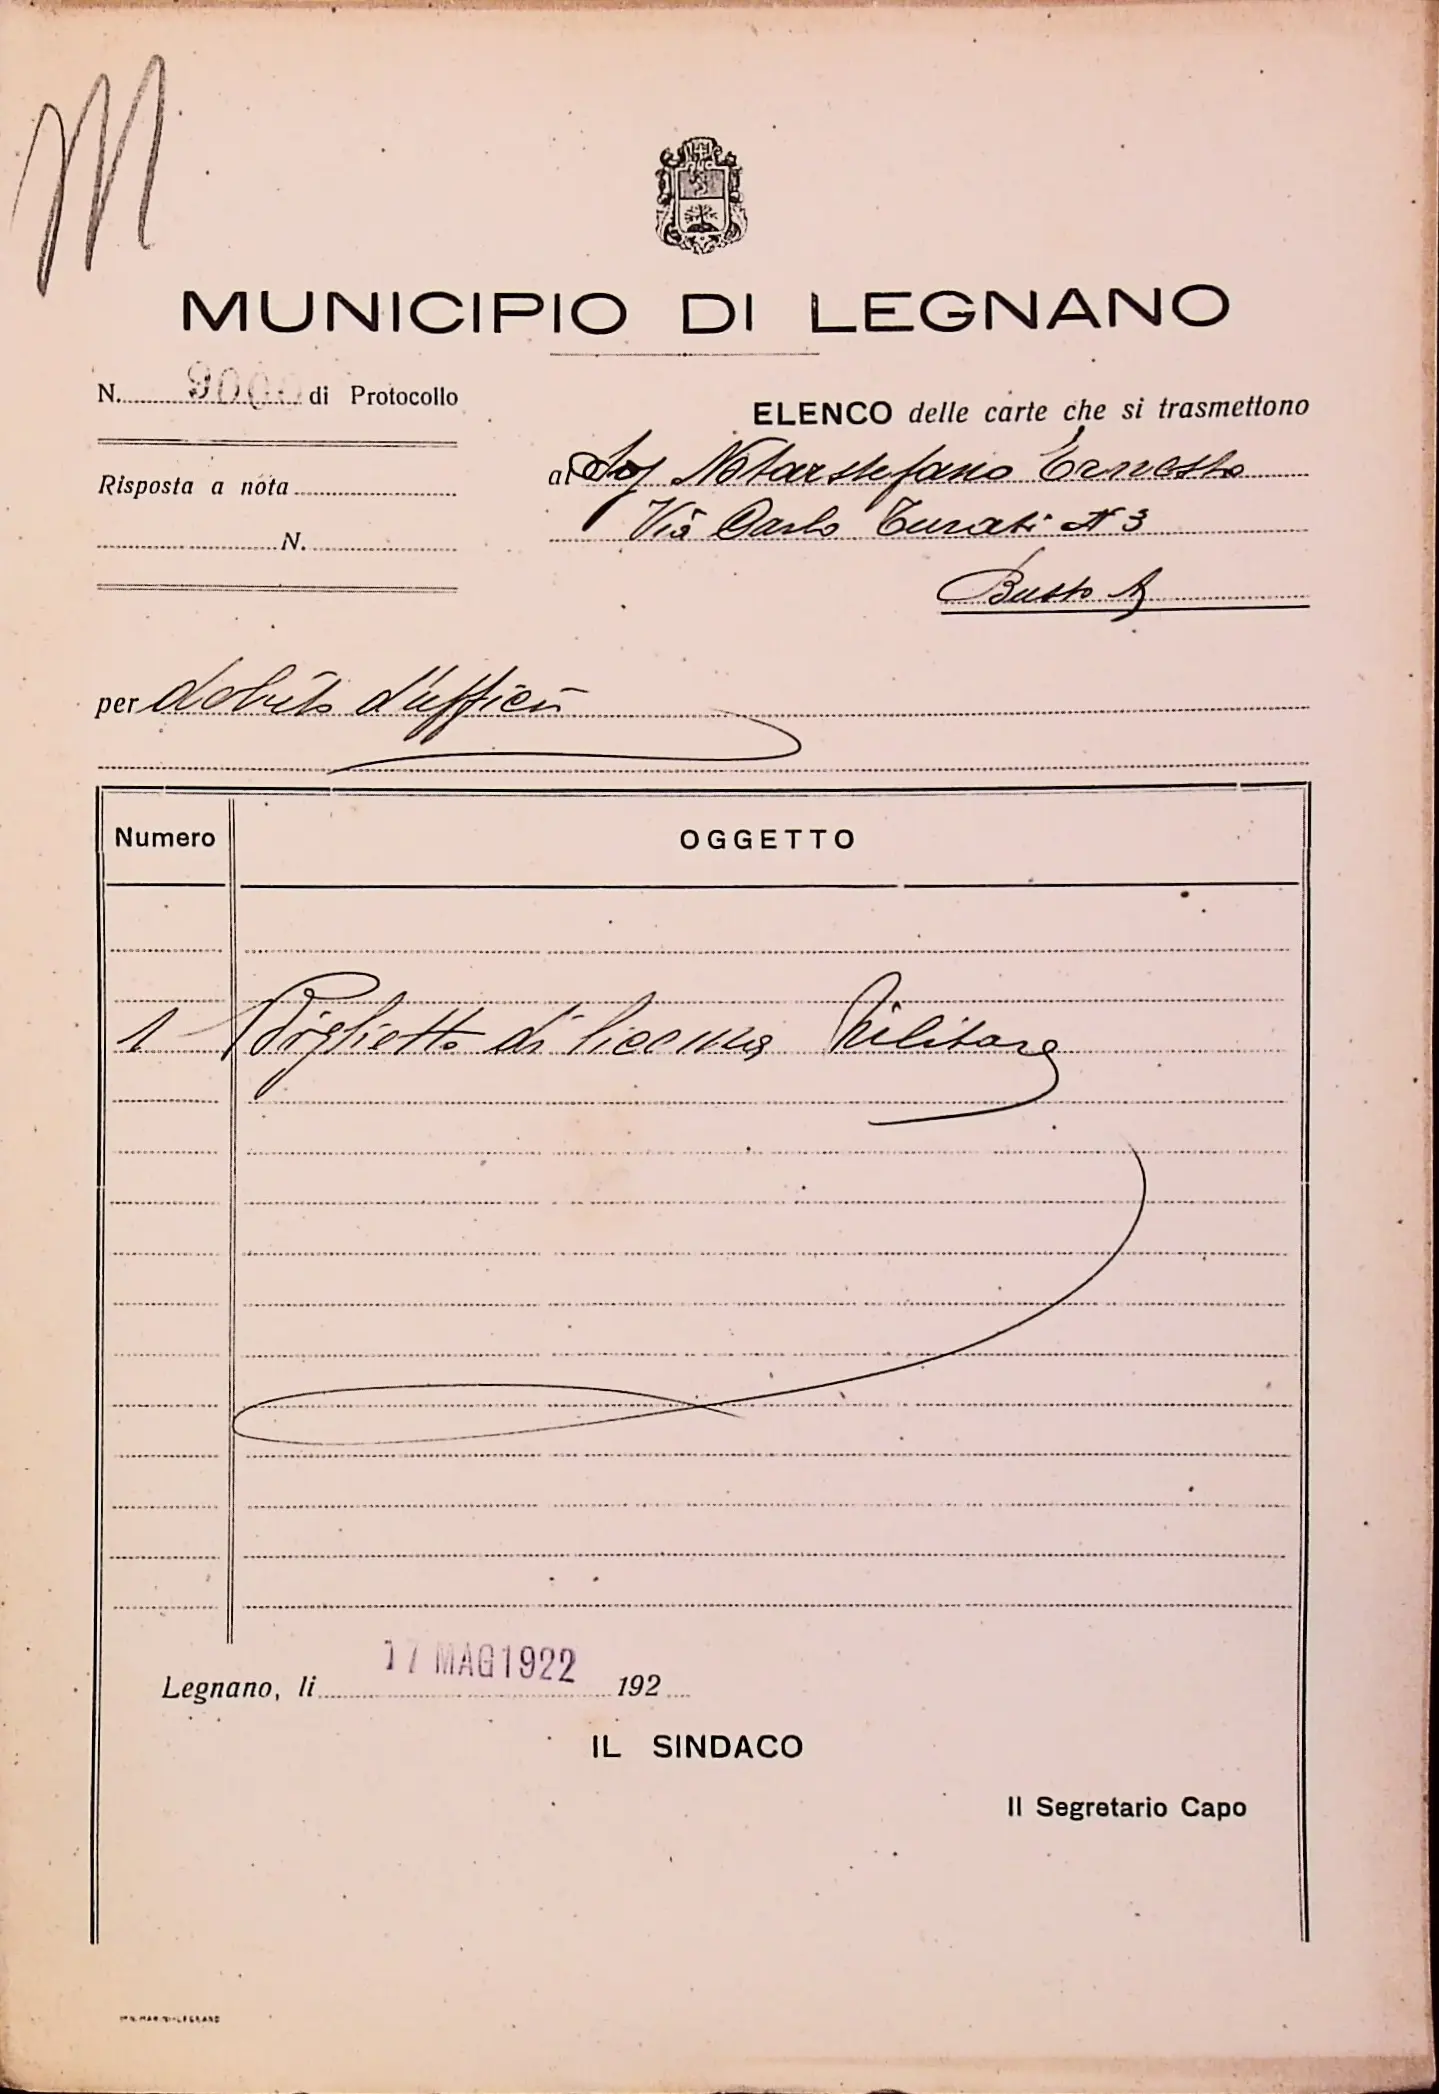 M
MUNICIPIO DI LEGNANO
N. 9000 di Protocollo
Risposta a nota
N.
ELENCO delle carte che si trasmettono
al Sig Notarstefano Ernesto
Via Carlo Turati N 3
Busto A
per debito d'ufficio
Numero OGGETTO
1 Biglietto di licenza Militare
Legnano, li 17 MAG 1922 192
IL SINDACO
Il Segretario Capo